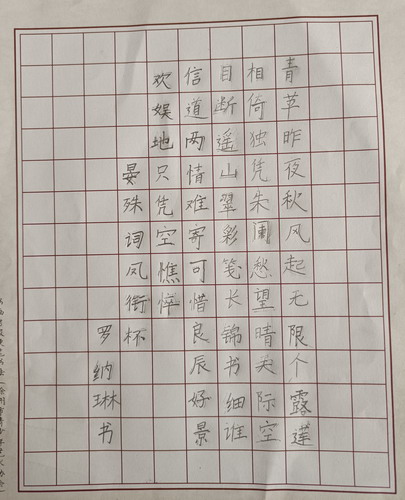 青草昨夜秋风起无限个露莲
相倚独凭朱阑愁望晴天际空
目断遥山翠彩笺长锦书细谁
信道两情难寄可惜良辰好景
欢娱地只凭空憔悴
晏殊词风衔杯
罗纳琳书